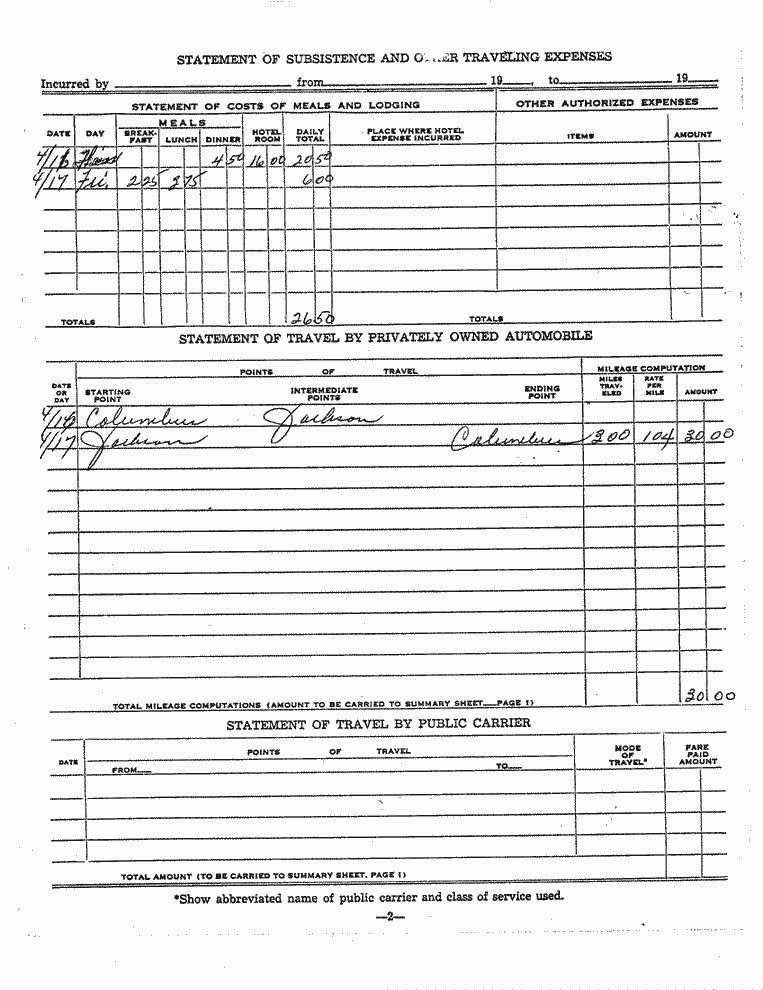 STATEMENT OF SUBSISTENCE AND OTHER TRAVELING EXPENSES
Incurred by from 19 , to 19
STATEMENT OF COSTS OF MEALS AND LODGING OTHER AUTHORIZED EXPENSES
MEALS
DATE DAY BREAK-FAST LUNCH DINNER HOTEL ROOM DAILY TOTAL PLACE WHERE HOTEL EXPENSE INCURRED ITEMS AMOUNT
4/16 4 50 16 00 20 50
4/17 Fri. 2 25 3 75 6 00
TOTALS 26 50 TOTALS
STATEMENT OF TRAVEL BY PRIVATELY OWNED AUTOMOBILE
POINTS OF TRAVEL MILEAGE COMPUTATION
DATE OR DAY STARTING POINT INTERMEDIATE POINTS ENDING POINT MILES TRAV-ELED RATE PER MILE AMOUNT
4/16 Columbus Jackson
4/17 Jackson Columbus 300 10¢ 30 00
TOTAL MILEAGE COMPUTATIONS (AMOUNT TO BE CARRIED TO SUMMARY SHEET—PAGE 1) 30 00
STATEMENT OF TRAVEL BY PUBLIC CARRIER
POINTS OF TRAVEL
DATE FROM— TO— MODE OF TRAVEL* FARE PAID AMOUNT
TOTAL AMOUNT (TO BE CARRIED TO SUMMARY SHEET, PAGE 1)
*Show abbreviated name of public carrier and class of service used.
—2—